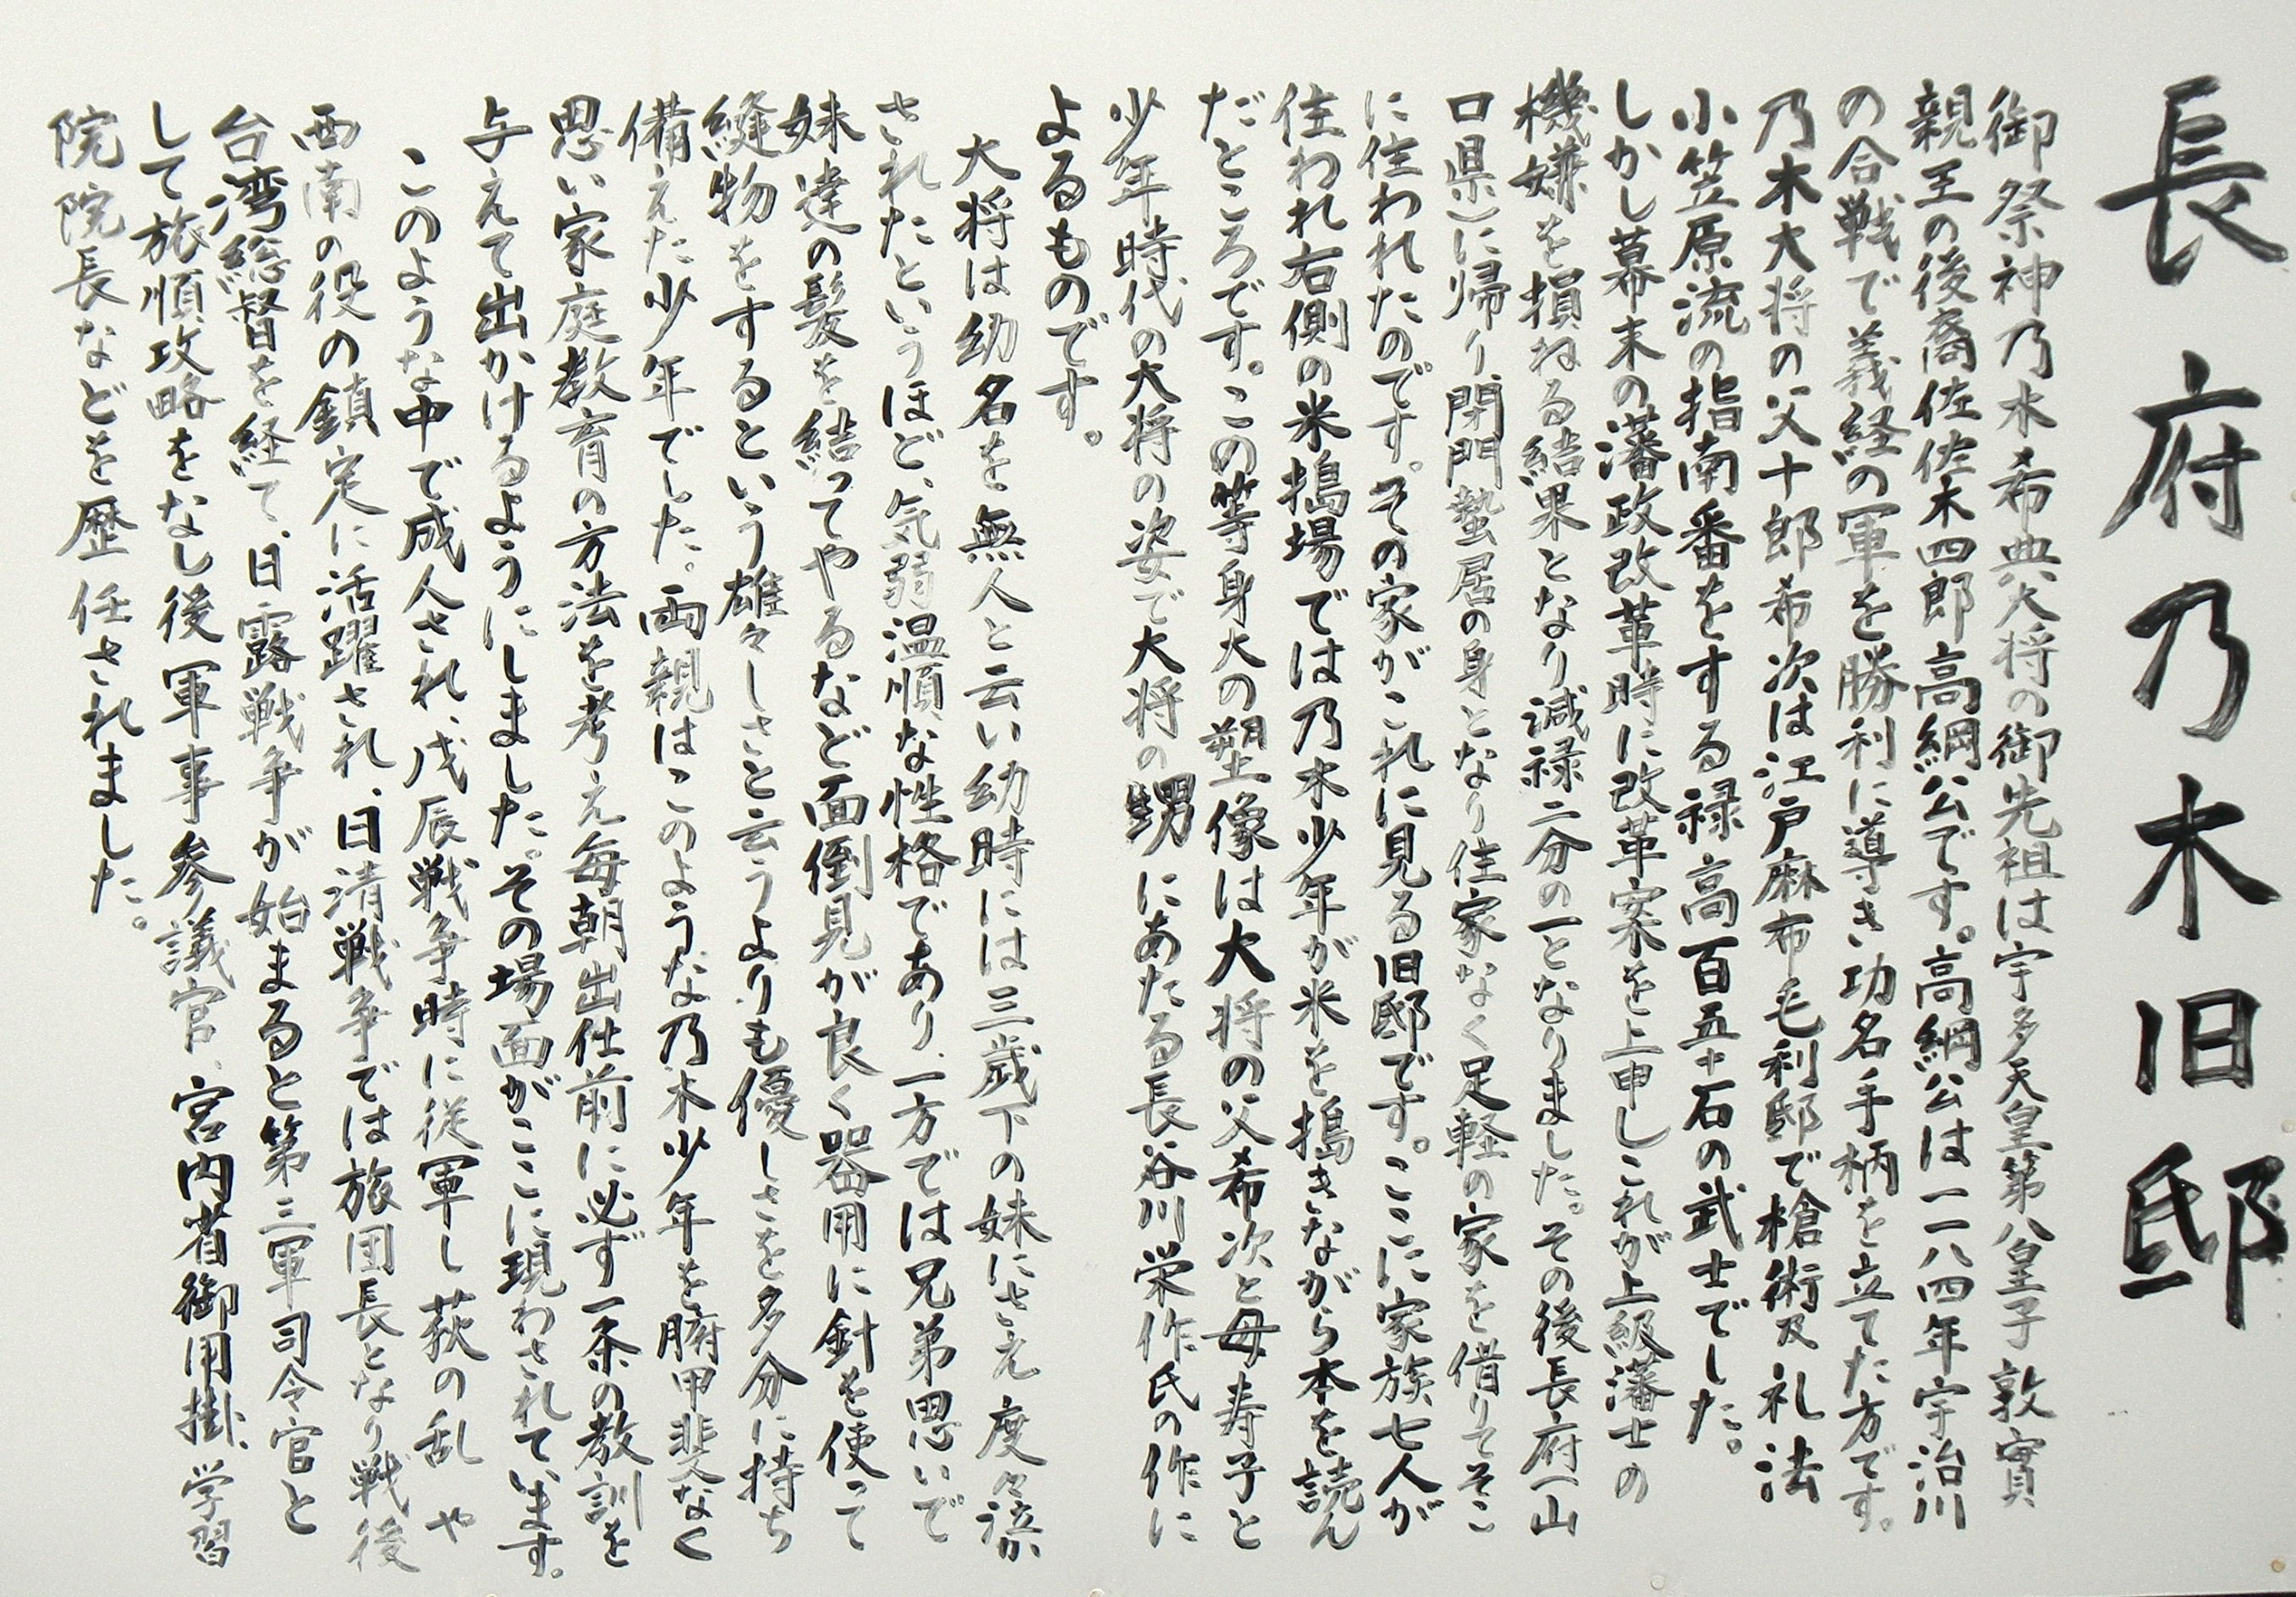 長府乃木旧邸
御祭神乃木希典大将の御先祖は宇多天皇第八皇子敦實
親王の後裔佐佐木四郎高綱公です。高綱公は一一八四年宇治川
の合戦で義経の軍を勝利に導き功名手柄を立てた方です。
乃木大将の父十郎希次は江戸麻布毛利邸で槍術及礼法
小笠原流の指南番をする禄高百五十石の武士でした。
しかし幕末の藩政改革時に改革案を上申しこれが上級藩士の
機嫌を損ねる結果となり減禄二分の一となりました。その後長府(山
口県)に帰り、閉門蟄居の身となり住家なく足軽の家を借りてそこ
に住われたのです。その家がこれに見る旧邸です。ここに家族七人が
住われ右側の米搗場では乃木少年が米を搗きながら本を読ん
だところです。この等身大の塑像は大将の父希次と母寿子と
少年時代の大将の姿で大将の甥にあたる長谷川栄作氏の作に
よるものです。
大将は幼名を無人と云い幼時には三歳下の妹にさえ度々泣か
されたというほど、気弱温順な性格であり、一方では兄弟思いで
妹達の髪を結ってやるなど面倒見が良く器用に針を使って
縫物をするという雄々しさと云うよりも優しさを多分に持ち
備えた少年でした。両親はこのような乃木少年を腑甲斐なく
思い家庭教育の方法を考え毎朝出仕前に必ず一条の教訓を
与えて出かけるようにしました。その場面がここに現わされています。
このような中で成人され、戊辰戦争時に従軍し萩の乱や
西南の役の鎮定に活躍され、日清戦争では旅団長となり戦後
台湾総督を経て、日露戦争が始まると第三軍司令官と
して旅順攻略をなし後軍事参議官、宮内省御用掛、学習
院院長などを歴任されました。